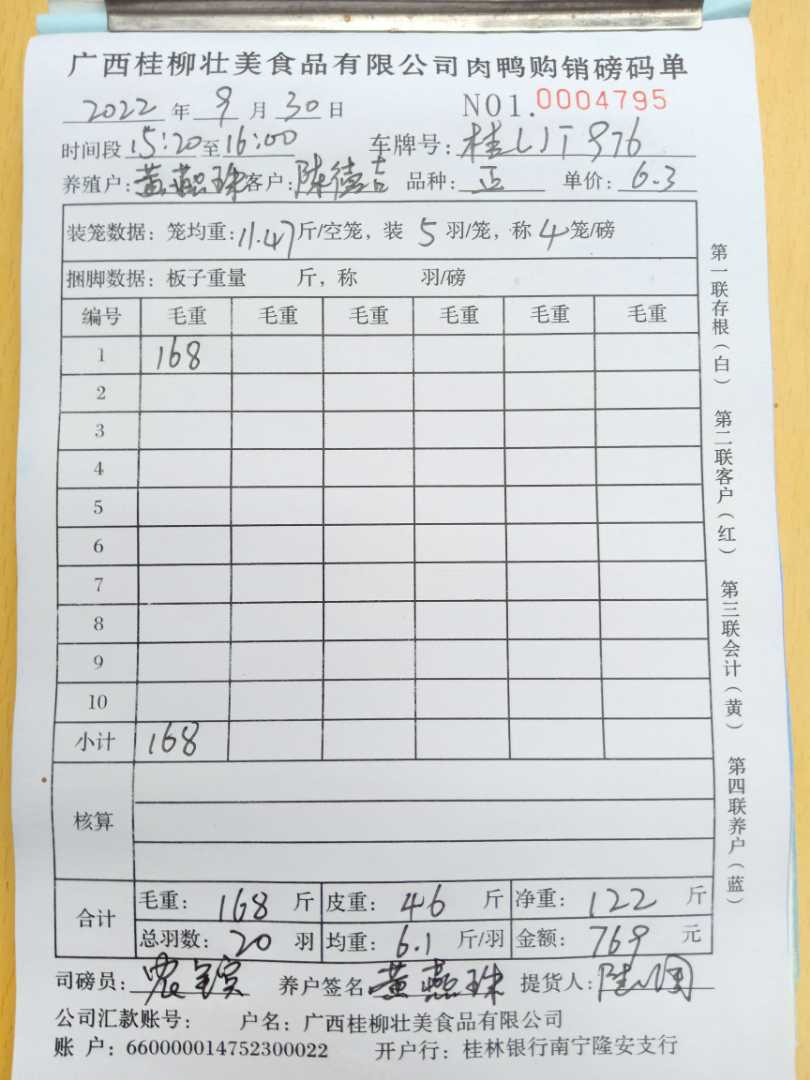 广西桂柳壮美食品有限公司肉鸭购销磅码单
2022 年 9 月 30 日 NO1.0004795
时间段 15:20 至 16:00 车牌号: 桂LJT976
养殖户: 黄燕珠 客户: 陈德吉 品种: 正 单价: 6.3
装笼数据: 笼均重: 11.47 斤/空笼, 装 5 羽/笼, 称 4 笼/磅
捆脚数据: 板子重量 斤, 称 羽/磅
编号 毛重 毛重 毛重 毛重 毛重 毛重
1 168
2
3
4
5
6
7
8
9
10
小计 168
核算
合计 毛重: 168 斤 皮重: 46 斤 净重: 122 斤
总羽数: 20 羽 均重: 6.1 斤/羽 金额: 769 元
司磅员: 养户签名 黄燕珠 提货人:
公司汇款账号: 户名: 广西桂柳壮美食品有限公司
账 户: 660000014752300022 开户行: 桂林银行南宁隆安支行
第一联存根(白) 第二联客户(红) 第三联会计(黄) 第四联养户(蓝)